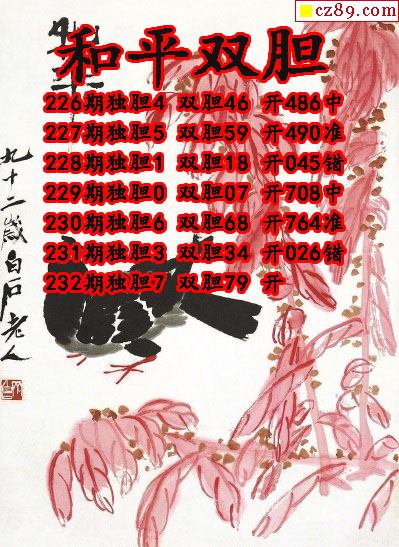 cz89.com
和平双胆
226期独胆4 双胆46 开486中
227期独胆5 双胆59 开490准
228期独胆1 双胆18 开045错
229期独胆0 双胆07 开708中
230期独胆6 双胆68 开764准
231期独胆3 双胆34 开026错
232期独胆7 双胆79 开
九十二岁白石老人